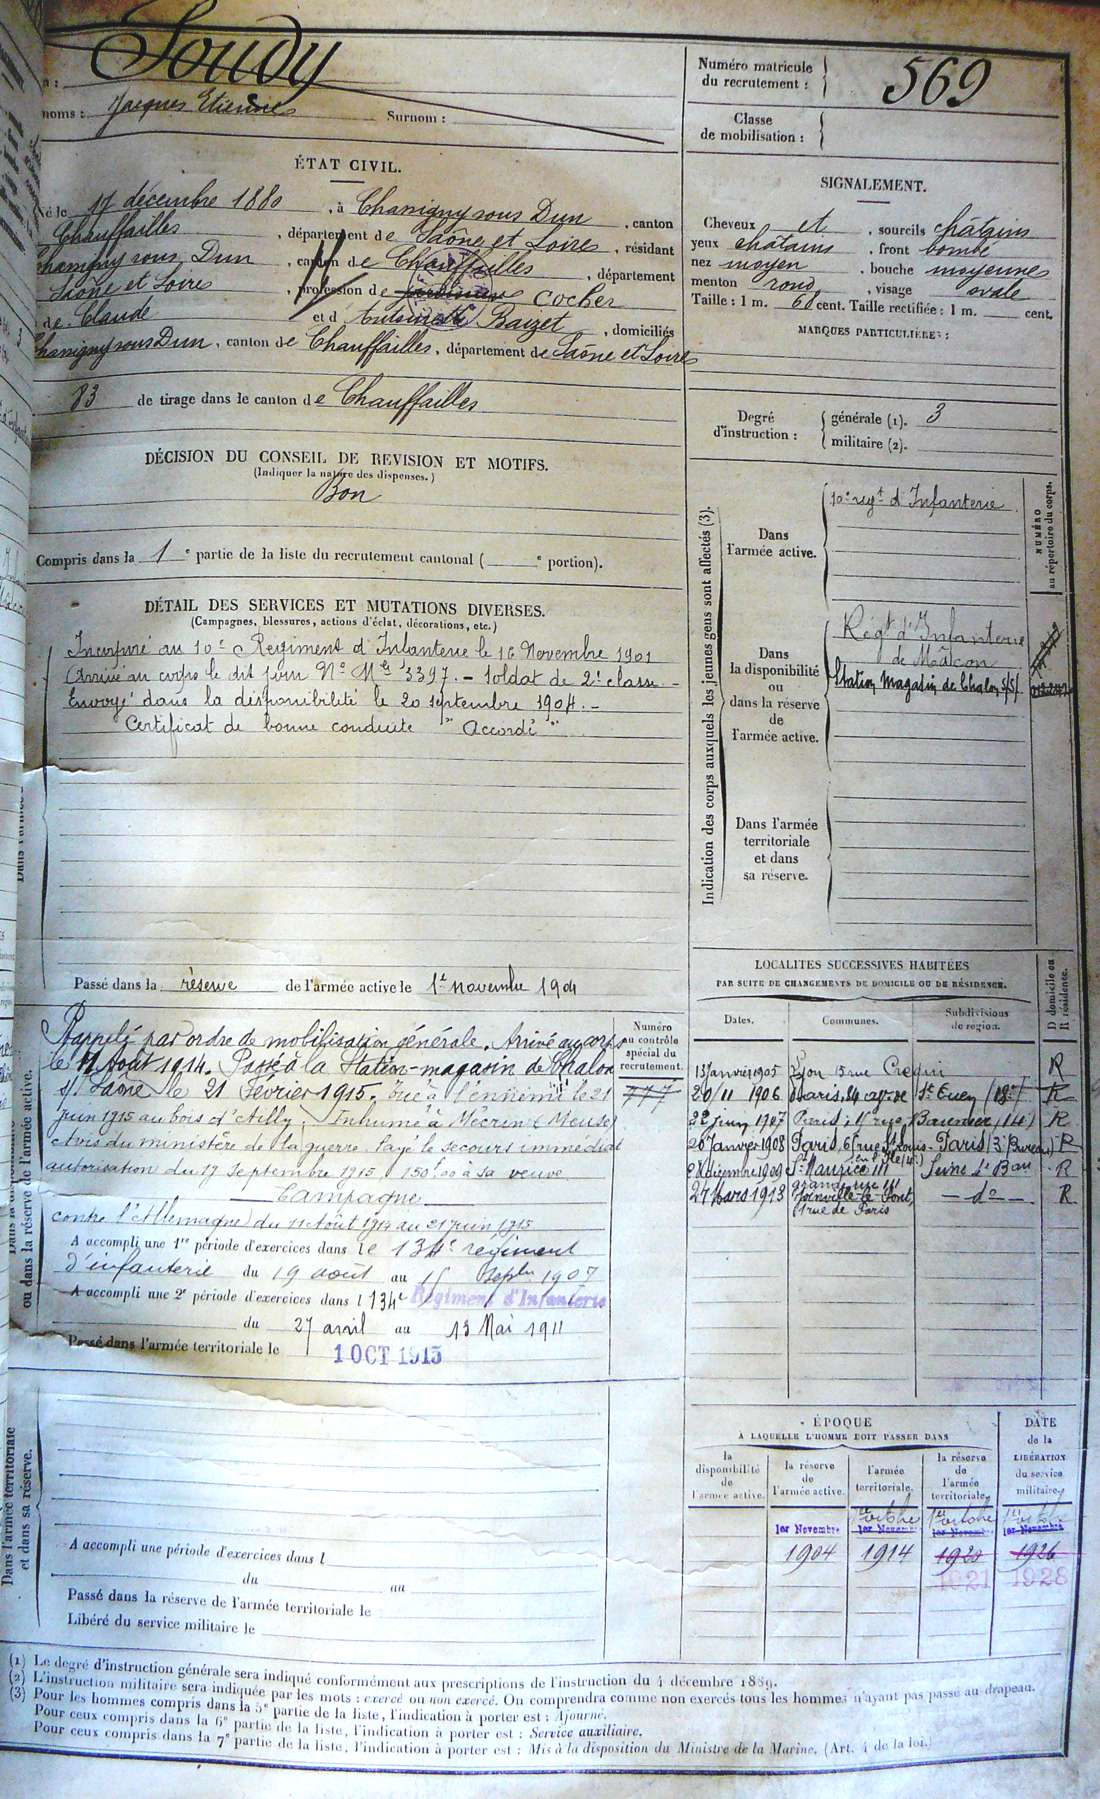 Soudy
noms : Jacques Etienne Surnom :
Numéro matricule
du recrutement :
569
Classe
de mobilisation :
ÉTAT CIVIL.
Né le 17 décembre 1880, à Chassigny sous Dun, canton
Chauffailles, département de Saône et Loire, résidant
Chassigny sous Dun, canton de Chauffailles, département
Saône et Loire, profession de Cocher
de Claude et d Antoinette Baizet, domiciliés
Chassigny sous Dun, canton de Chauffailles, département de Saône et Loire
83 de tirage dans le canton de Chauffailles
SIGNALEMENT.
Cheveux et, sourcils châtains
yeux châtains, front bombé
nez moyen, bouche moyenne
menton rond, visage ovale
Taille : 1 m. 60 cent. Taille rectifiée : 1 m. cent.
MARQUES PARTICULIÈRES :
Degré
d'instruction :
générale (1). 3
militaire (2).
DÉCISION DU CONSEIL DE REVISION ET MOTIFS.
(Indiquer la nature des dispenses.)
Bon
Compris dans la 1e partie de la liste du recrutement cantonal ( e portion).
DÉTAIL DES SERVICES ET MUTATIONS DIVERSES.
(Campagnes, blessures, actions d'éclat, décorations, etc.)
Incorporé au 10e Régiment d'Infanterie le 16 Novembre 1901
Arrivé au corps le dit jour No Mle 3397. - Soldat de 2e classe -
Envoyé dans la disponibilité le 20 septembre 1904. -
Certificat de bonne conduite "Accordé"
Passé dans la réserve de l'armée active le 1er novembre 1904
Indication des corps auxquels les jeunes gens sont affectés (3).
NUMÉRO
au répertoire du corps.
Dans
l'armée active.
10e régt d'Infanterie
Dans
la disponibilité
ou
dans la réserve
de
l'armée active.
Régt d'Infanterie
de Mâcon
Station Magasin de Chalon s/S
Dans l'armée
territoriale
et dans
sa réserve.
ou dans la réserve de l'armée active.
Numéro
au contrôle
spécial du
recrutement.
777
Rappelé par ordre de mobilisation générale. Arrivé au corps
le 11 Août 1914. Passé à la Station-magasin de Chalon
s/ Saône le 21 Février 1915. Tué à l'ennemi le 21
juin 1915 au bois d'Ailly; Inhumé à Mécrin (Meuse)
Avis du ministère de la guerre. Payé le secours immédiat
autorisation du 17 Septembre 1915 150f00 à sa veuve
Campagne
contre l'Allemagne du 11 Août 1914 au 21 juin 1915
A accompli une 1re période d'exercices dans le 134e régiment
d'infanterie du 19 août au 15 Septbre 1907
A accompli une 2e période d'exercices dans l 134e Régiment d'Infanterie
du 27 avril au 13 Mai 1911
Passé dans l'armée territoriale le 1 OCT 1913
LOCALITÉS SUCCESSIVES HABITÉES
PAR SUITE DE CHANGEMENTS DE DOMICILE OU DE RÉSIDENCE.
D domicile ou
R résidence.
Dates. Communes. Subdivisions
de région.
13 Janvier 1905 Lyon 5 rue Crequi R
20/11 1906 Paris, 34 St Ouen R
22 juin 1907 Paris (14) R
20 Janvier 1908 Paris, 6 rue St Louis Paris (3e Bureau) R
en l'Ile (4e)
1909 St Maurice 111 Seine 4e Bau R
grande rue 111
27 Mars 1913 Joinville-le-Pont, - do - R
1 rue de Paris
ÉPOQUE
À LAQUELLE L'HOMME DOIT PASSER DANS
DATE
de la
LIBÉRATION
du service
militaire.
la
disponibilité
de
l'armée active.
la réserve
de
l'armée active.
l'armée
territoriale.
la réserve
de
l'armée
territoriale.
1er octobre 1er octobre 1er octobre
1er Novembre 1er Novembre 1er Novembre 1er Novembre
1904 1914 1920 1926
1921 1928
Dans l'armée territoriale
et dans sa réserve.
A accompli une période d'exercices dans l
du au
Passé dans la réserve de l'armée territoriale le
Libéré du service militaire le
(1) Le degré d'instruction générale sera indiqué conformément aux prescriptions de l'instruction du 4 décembre 1889.
(2) L'instruction militaire sera indiquée par les mots : exercé ou non exercé. On comprendra comme non exercés tous les hommes n'ayant pas passé au drapeau.
(3) Pour les hommes compris dans la 5e partie de la liste, l'indication à porter est : Ajourné.
Pour ceux compris dans la 6e partie de la liste, l'indication à porter est : Service auxiliaire.
Pour ceux compris dans la 7e partie de la liste, l'indication à porter est : Mis à la disposition du Ministre de la Marine. (Art. 4 de la loi.)